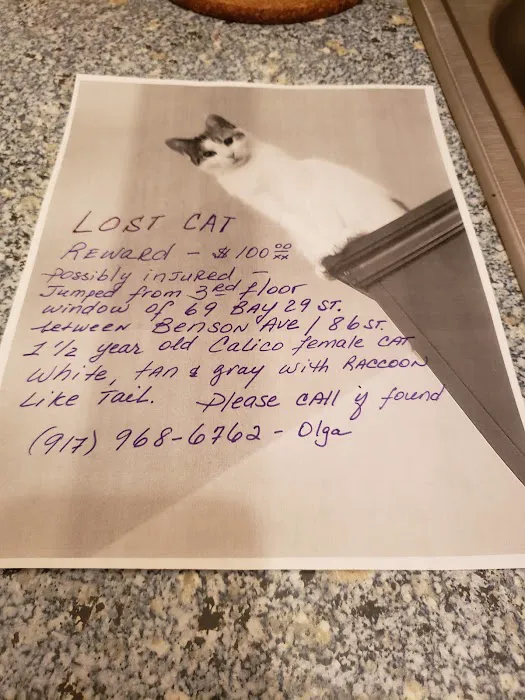 LOST CAT
REWARD - $100 00/xx
Possibly injured, -
Jumped from 3rd floor
window of 69 BAY 29 ST.
between Benson Ave / 86 ST.
1 1/2 year old Calico female CAT
White, tan & gray with RACCOON
Like Tail. Please CAll if found
(917) 968-6762 - Olga